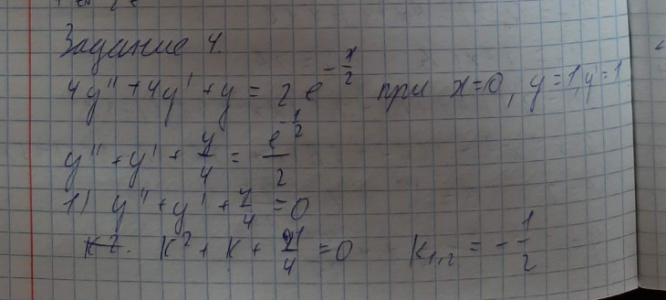 Задание 4.
4y'' + 4y' + y = 2 e^{-x/2} при x=0, y=1, y'=1
y'' + y' + y/4 = e^{-1/2}/2
1) y'' + y' + y/4 = 0
k² + k + 1/4 = 0 k_{1,2} = -1/2